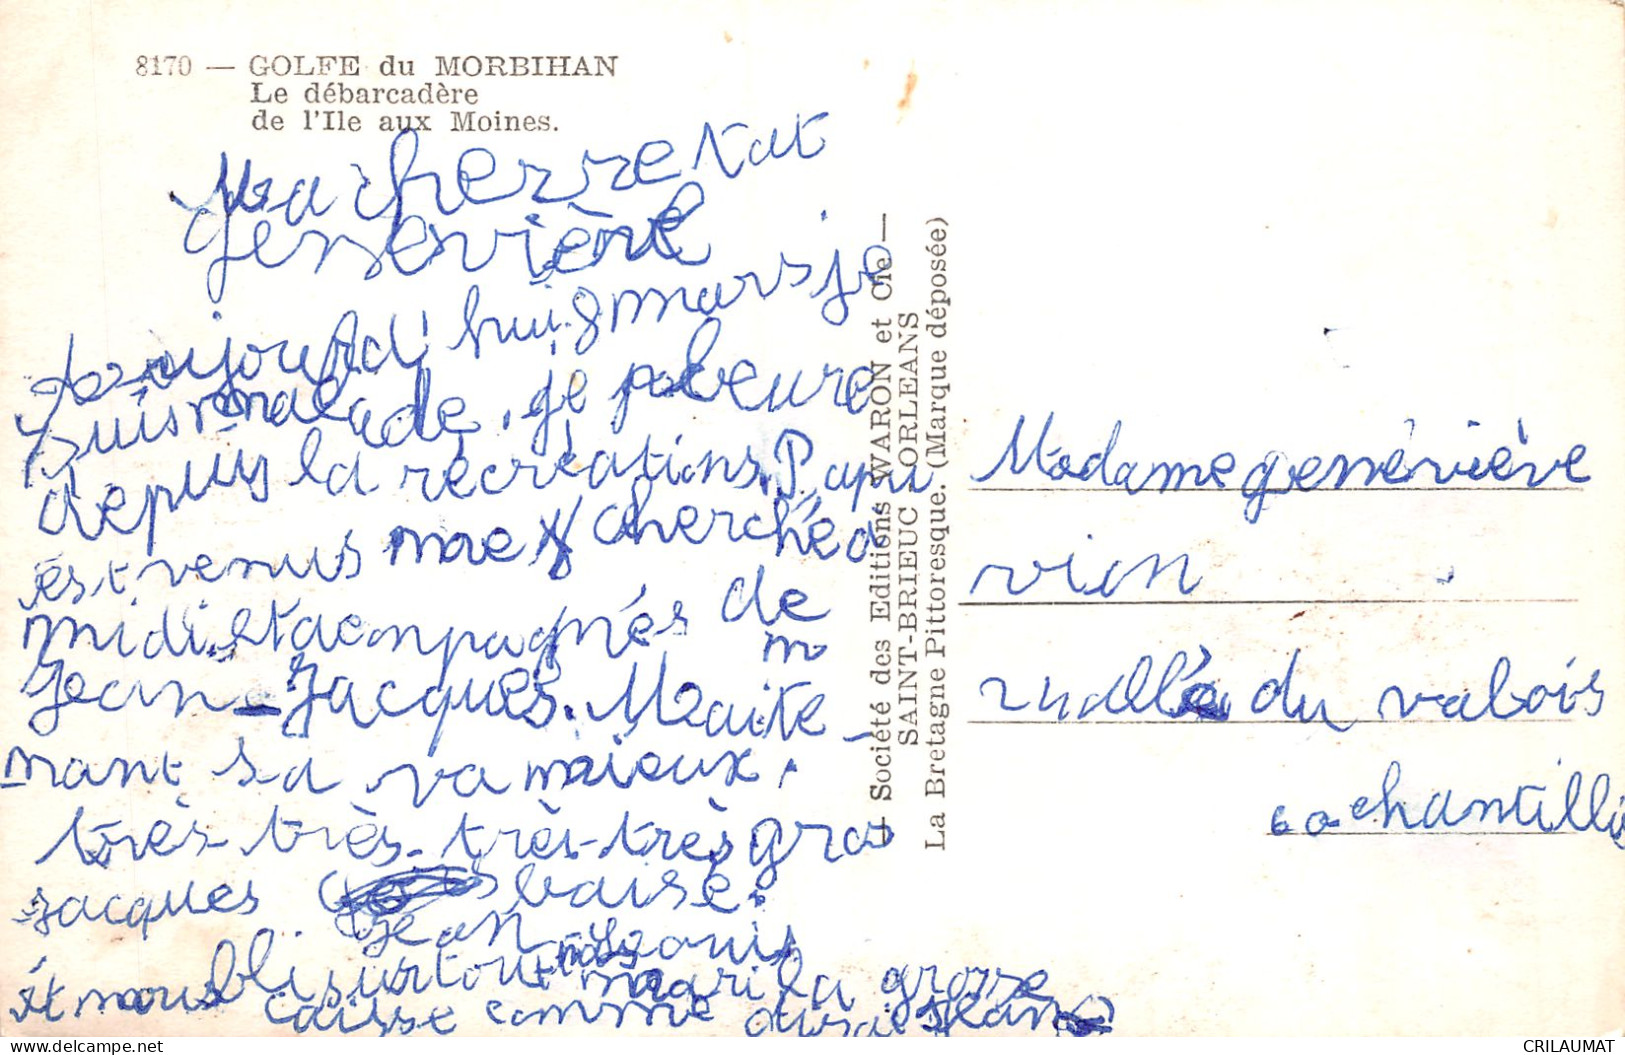 8170 — GOLFE du MORBIHAN
Le débarcadère
de l'Ile aux Moines.
Ma cherre tat
geneviève
aujourd'hui 8 mars je
suis malade. je pleure
depuis la récréations. Papi
est venus me cherché a
midi. et acompagnés de
Jean-Jacques. Mainte-
nant sa va mieux.
très-très-très-très gros
jacques baise.
jean Louis
et nous oubli surtout pas mari la grosse
caisse comme dirai jean
— Société des Editions WARON et Cie —
SAINT-BRIEUC ORLEANS
La Bretagne Pittoresque. (Marque déposée)
Madame genéviève
vion
ruelle du valois
60 chantilli
CRILAUMAT